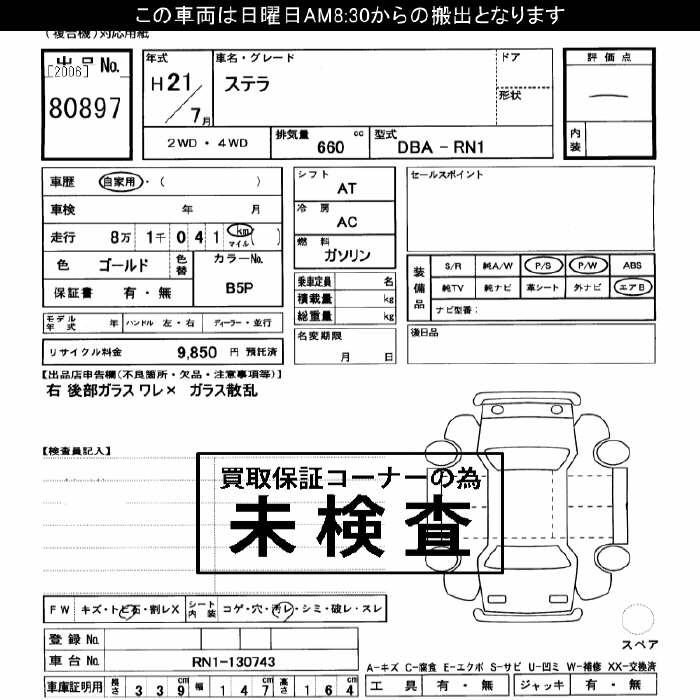 この車両は日曜日AM8:30からの搬出となります
(複合機)対応用紙
出品No.
[2006]
80897
年式
H21/7月
車名・グレード
ステラ
ドア
形状
評価点
内装
2WD・4WD
排気量 cc
660
型式
DBA-RN1
車歴 自家用・( )
車検 年 月
走行 8万 1千 0 4 1 km マイル( )
色 ゴールド
色替
カラーNo.
B5P
保証書 有・無
シフト
AT
冷房
AC
燃料
ガソリン
乗車定員 名
積載量 kg
総重量 kg
セールスポイント
装備品
S/R 純A/W P/S P/W ABS
純TV 純ナビ 革シート 外ナビ エアB
ナビ型番:
モデル年式 年 ハンドル 左・右 ディーラー・並行
名変期限
月 日
後日品
リサイクル料金 9,850 円 預託済
【出品店申告欄(不良箇所・欠品・注意事項等)】
右 後部ガラス ワレ× ガラス散乱
【検査員記入】
買取保証コーナーの為
未検査
FW キズ・トビ石・割レX シート内装 コゲ・穴・汚レ・シミ・破レ・スレ
登録No.
車台No. RN1-130743
車庫証明用 長さ 339cm 幅 147cm 高さ 164cm
スペア
A-キズ C-腐食 E-エクボ S-サビ U-凹ミ W-補修 XX-交換済
工具 有・無 ジャッキ 有・無